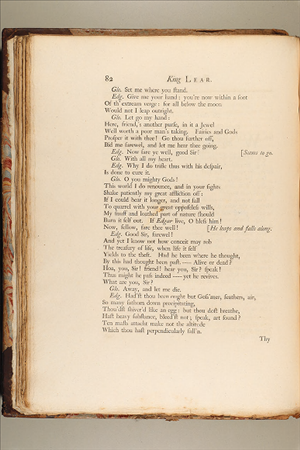 82 King LEAR.
Glo. Set me where you stand.
Edg. Give me your hand: you're now within a foot
Of th' extream verge: for all below the moon
Would not I leap outright.
Glo. Let go my hand:
Here, friend,'s another purse, in it a jewel
Well worth a poor man's taking. Fairies and Gods
Prosper it with thee! Go thou further off,
Bid me farewel, and let me hear thee going.
Edg. Now fare ye well, good Sir! [Seems to go.
Glo. With all my heart.
Edg. Why I do trifle thus with his despair,
Is done to cure it.
Glo. O you mighty Gods!
This world I do renounce, and in your sights
Shake patiently my great affliction off:
If I could bear it longer, and not fall
To quarrel with your great opposeless wills,
My snuff and loathed part of nature should
Burn it self out. If Edgar live, O bless him!
Now, fellow, fare thee well! [He leaps and falls along.
Edg. Good Sir, farewel!
And yet I know not how conceit may rob
The treasury of life, when life it self
Yields to the theft. Had he been where he thought,
By this had thought been past. — Alive or dead?
Hoa, you, Sir! friend! hear you, Sir? speak!
Thus might he pass indeed — yet he revives.
What are you, Sir?
Glo. Away, and let me die.
Edg. Had'st thou been ought but Goss'mer, feathers, air,
So many fathom down precipitating,
Thou'dst shiver'd like an egg: but thou dost breathe,
Hast heavy substance, bleed'st not; speak, art sound?
Ten masts attacht make not the altitude
Which thou hast perpendicularly fall'n.
Thy